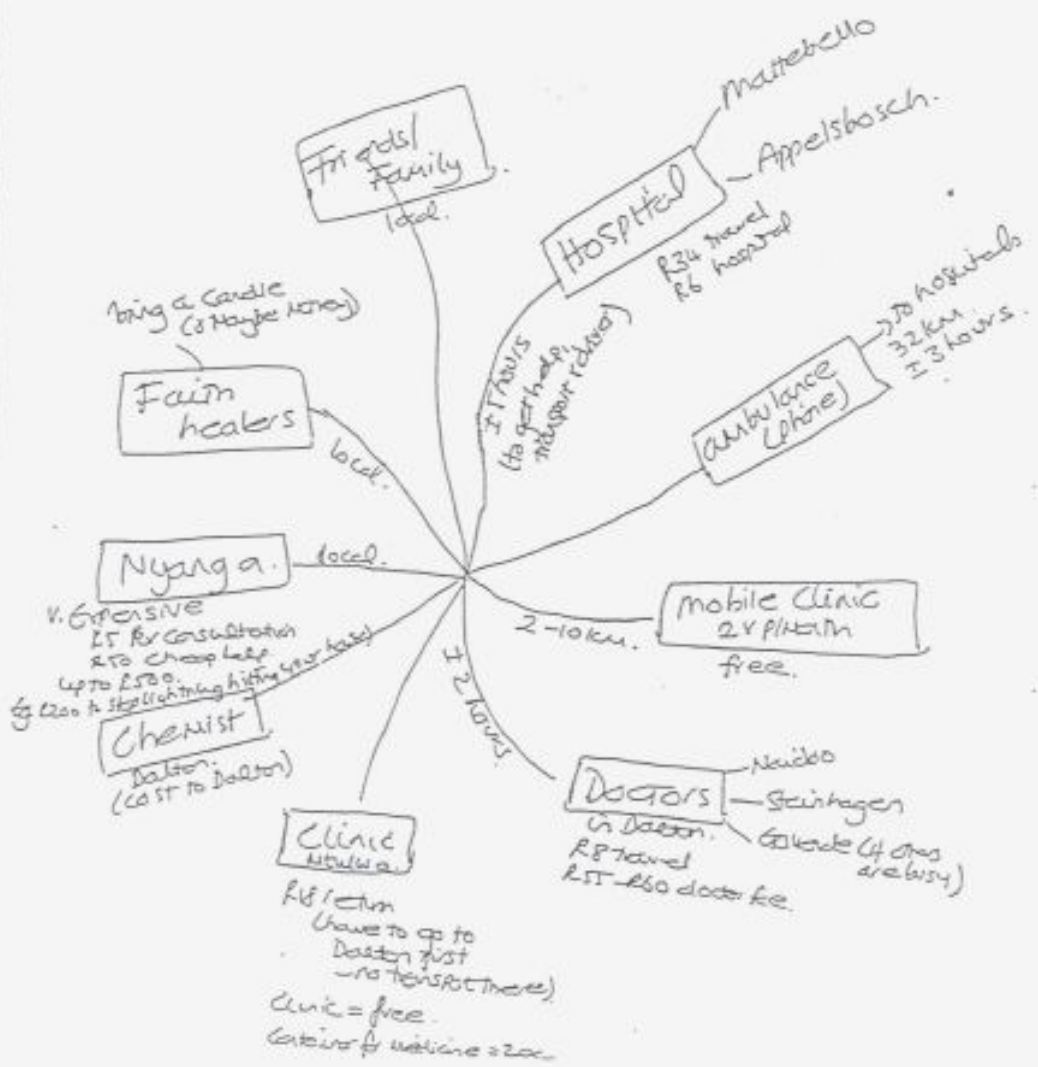 Friends/
Family
local.
Mattebello
Appelsbosch.
Hospital
R34 travel
R6 hospital
± 5 hours
(to get help,
transport & doctor)
Ambulance
(phone)
→ to hospitals
32km
± 3 hours.
Mobile Clinic
2 x p/Month
free.
2-10km.
Doctors
in Dalton.
R8 travel
R55-R60 doctor fee.
Naidoo
Steinhagen
(if others
are busy)
± 2 hours.
Clinic
R18 return
(have to go to
Dalton first
- no transport there)
Clinic = free.
Container for medicine = 20c
Chemist
Dalton.
(COST to Dalton)
Nyanga.
local.
V. Expensive
R5 for consultation
R50 cheap help
up to R500.
eg R200 to stop lightning hitting your house)
Faith
healers
local.
bring a Candle
(or Maybe Money)